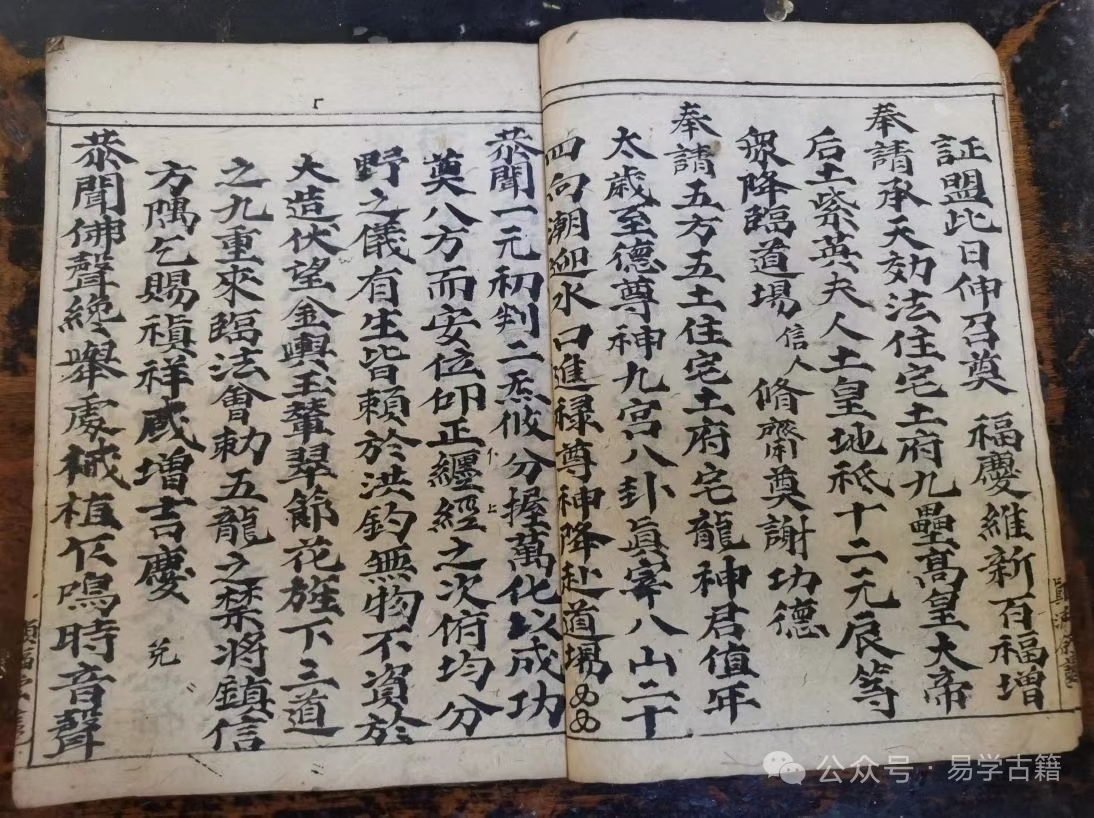 証盟此日伸召奠　福慶維新百福增
奉請承天効法住宅土府九壘髙皇大帝
后土紫英夫人土皇地祇十二元辰等
衆降臨道場信人修齋奠謝功德
奉請五方五土住宅土府宅龍神君值年
太歲至德尊神九宮八卦眞宰八山二十
四向潮迎水口進祿尊神降赴道場
恭聞一元初判二炁攸分握萬化以成功
奠八方而安位仰正纏經之次俯均分
野之儀有生皆賴於洪鈞無物不資於
大造伏望金輿玉輦翠節花旌下三道
之九重來臨法會勅五龍之禁將鎮信
方隅乞賜禎祥咸增吉慶
恭聞佛聲纔舉處穢植仄鳴時音聲
公众号·易学古籍